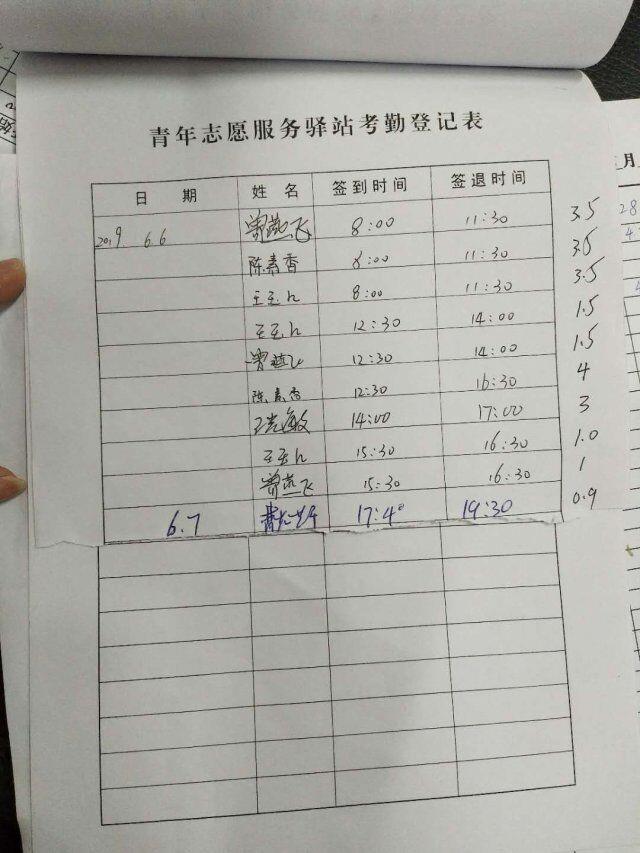 青年志愿服务驿站考勤登记表
日 期 姓 名 签到时间 签退时间
2019 6.6 曾燕飞 8:00 11:30 3.5
陈素香 8:00 11:30 3.5
8:00 11:30 3.5
12:30 14:00 1.5
曾燕飞 12:30 14:00 1.5
陈素香 12:30 16:30 4
14:00 17:00 3
15:30 16:30 1.0
曾燕飞 15:30 16:30 1
6.7 17:40 19:30 0.9
月
28